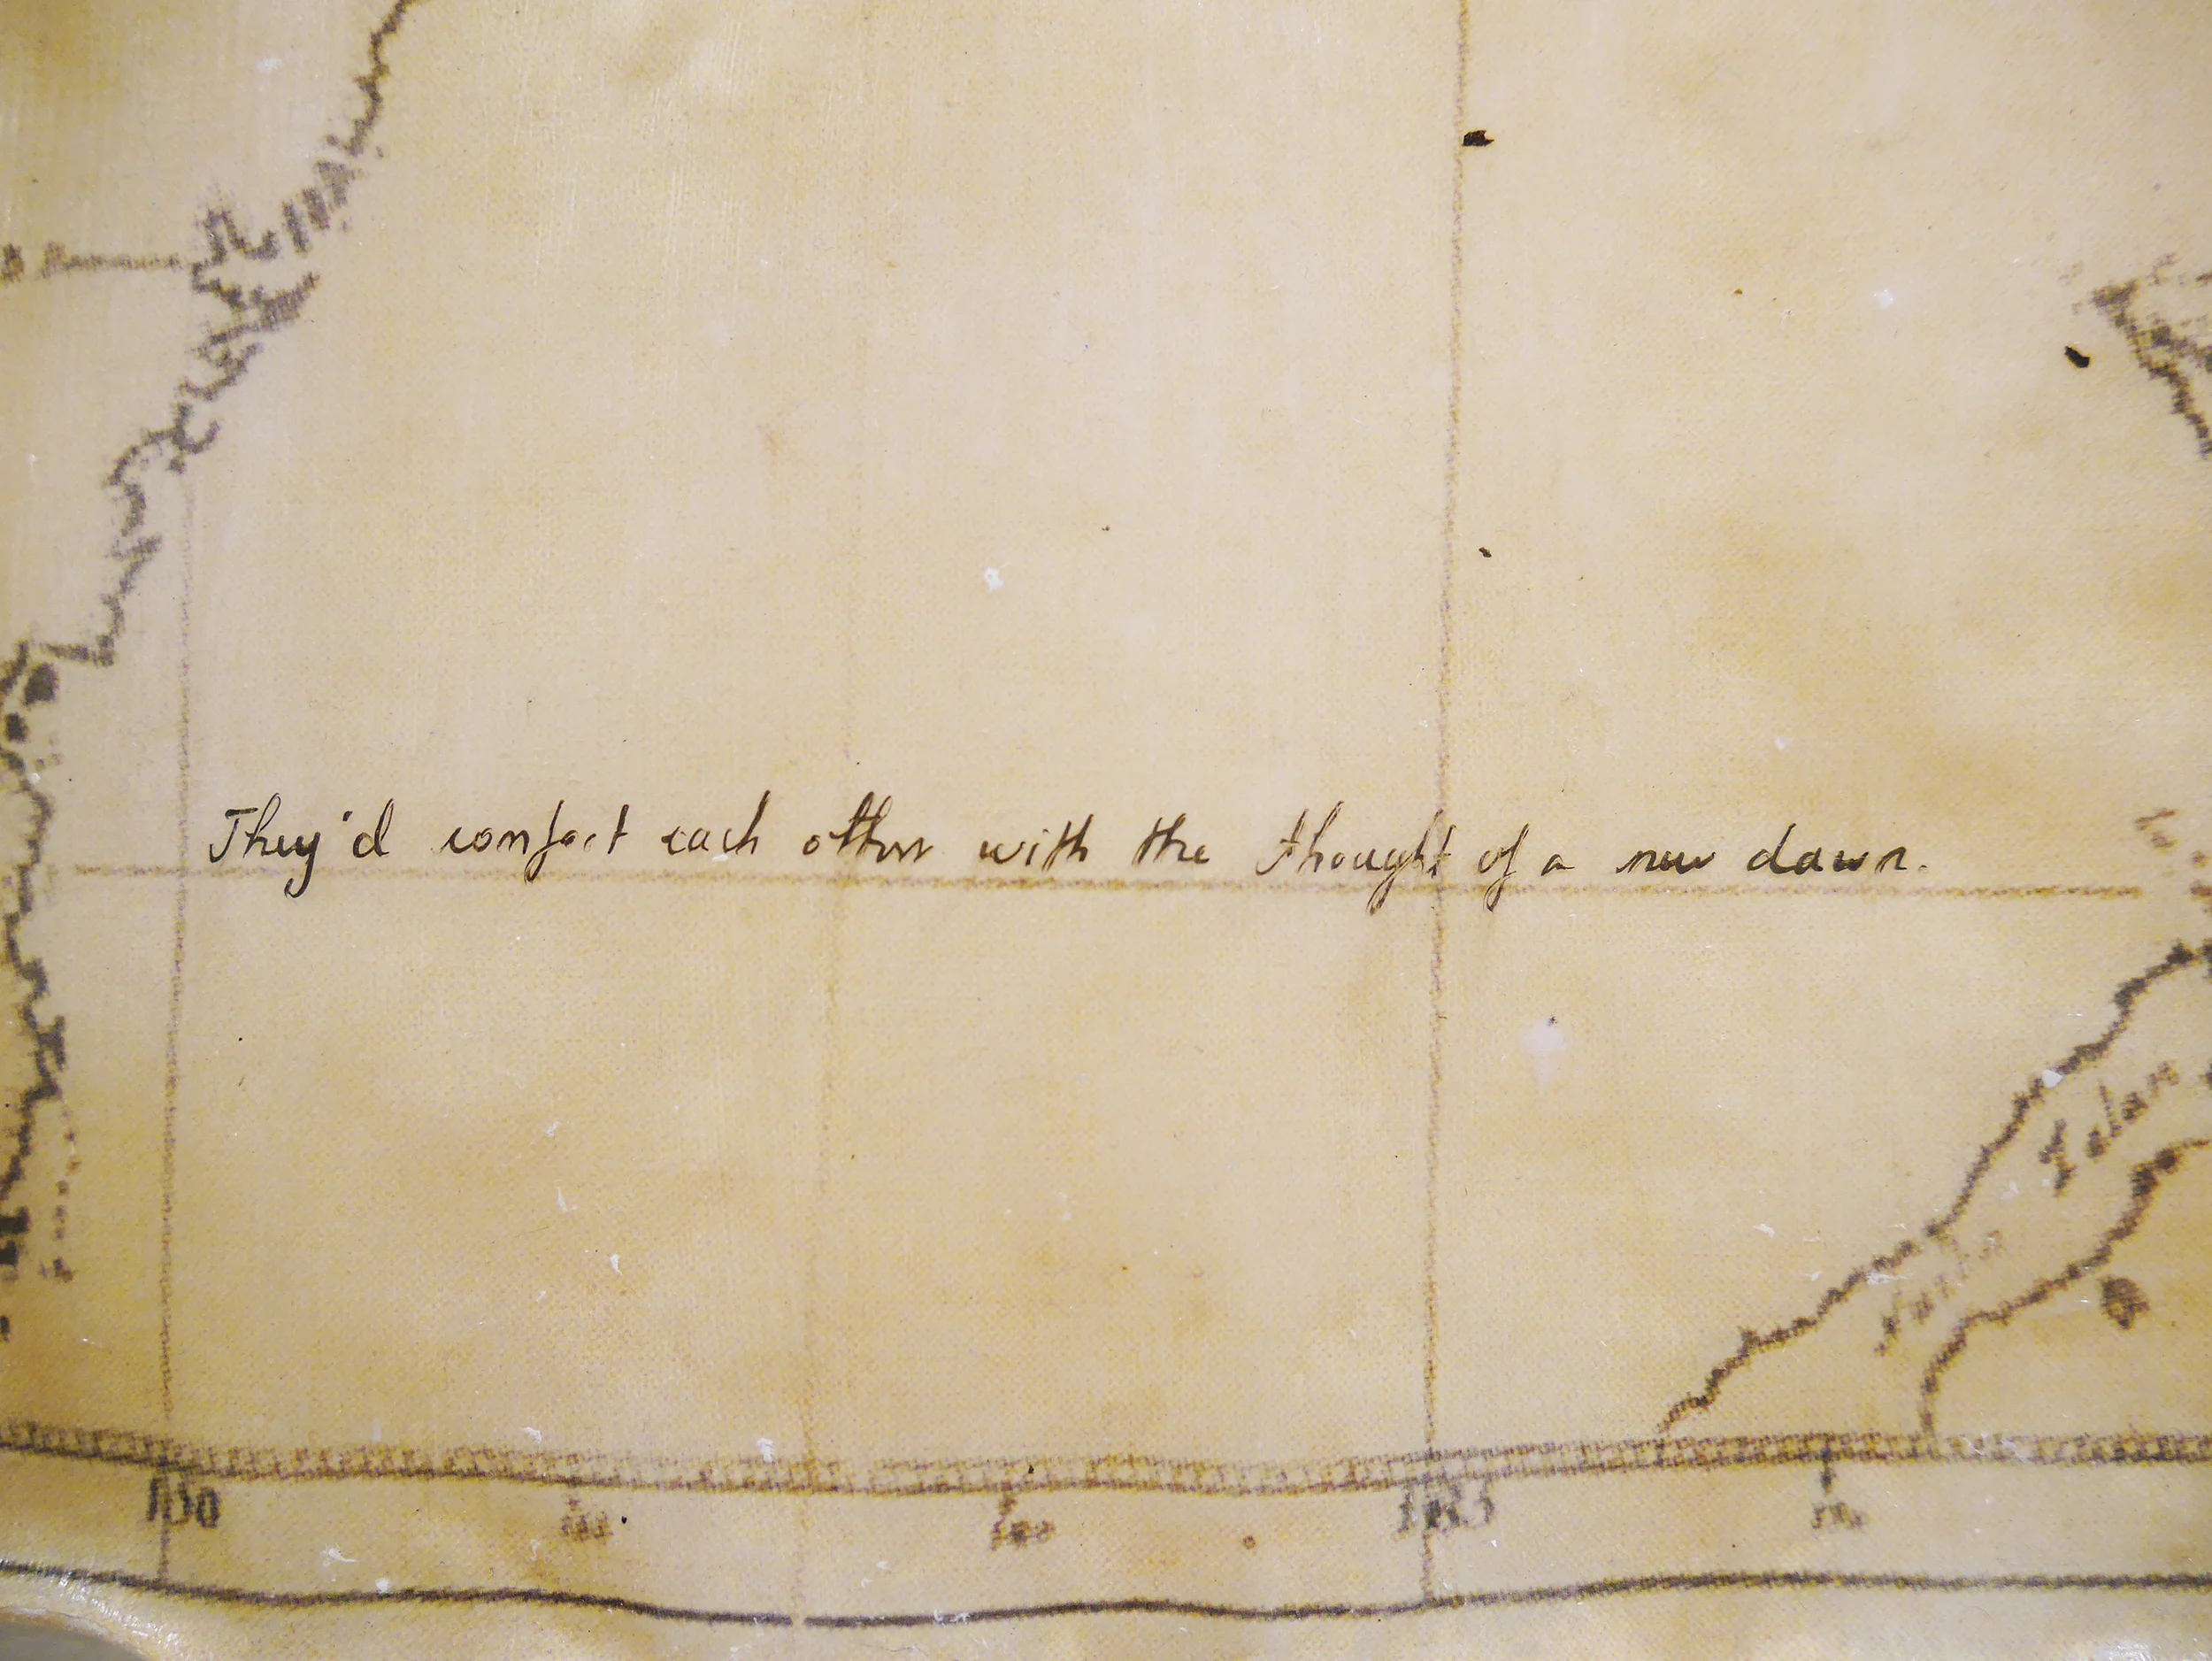 They'd comfort each other with the thought of a new dawn.
130
135